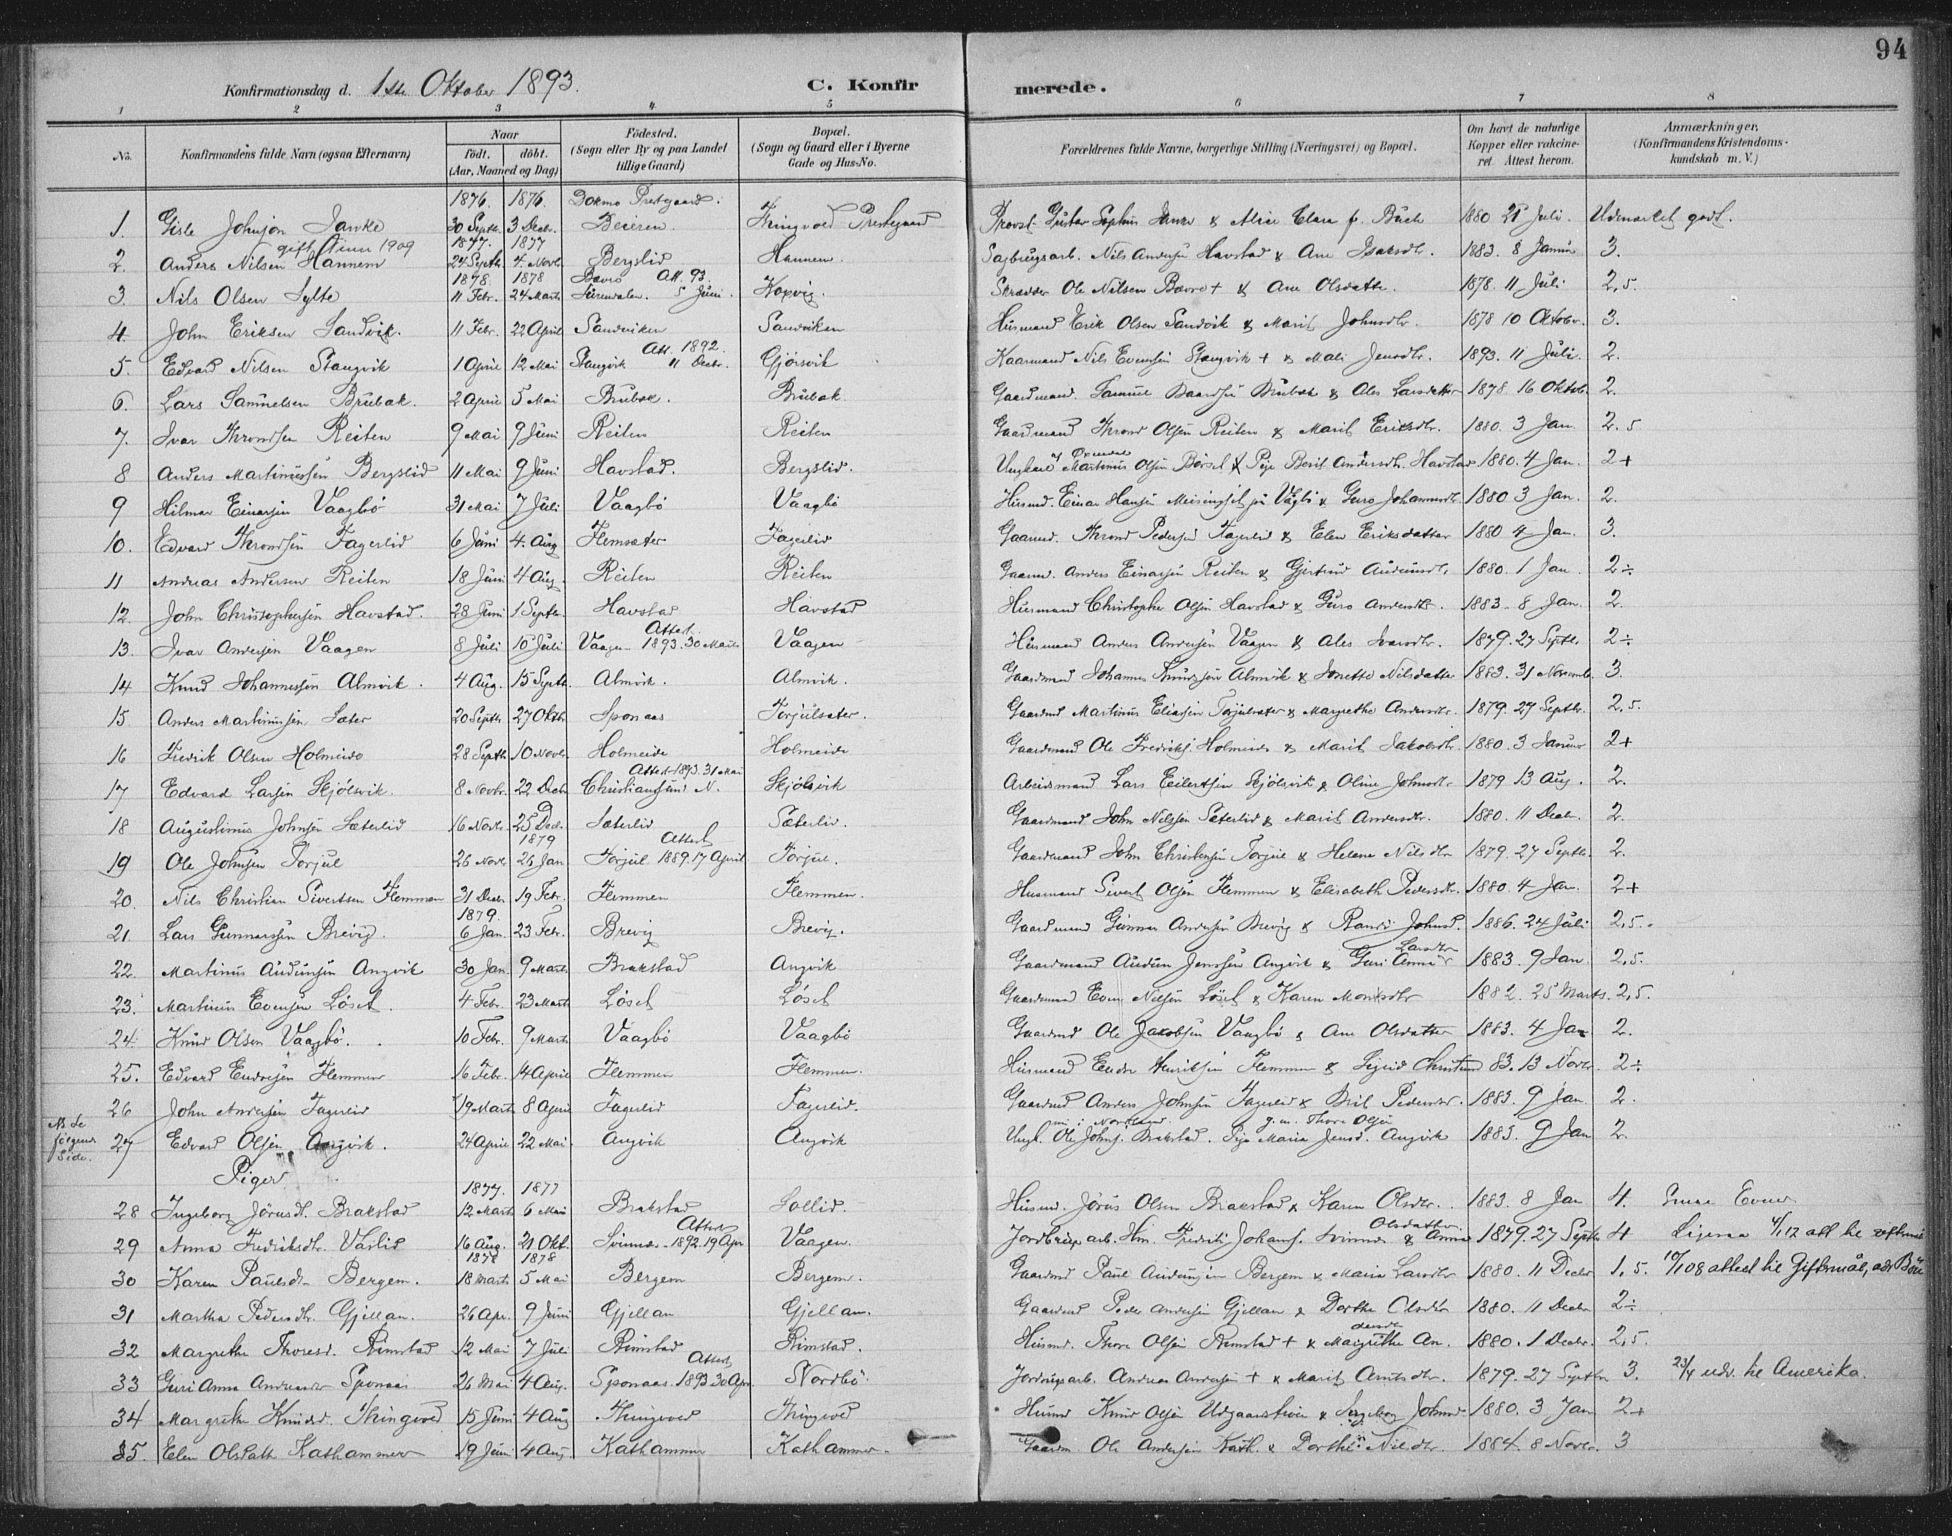 94
Konfirmationsdag d. 1ste Oktober 1893. C. Konfirmerede.
1 2 3 4 5 6 7 8
No. Konfirmandens fulde Navn (ogsaa Efternavn) Naar födt. döbt. (Aar, Maaned og Dag) Födested. (Sogn eller By og paa Landet tillige Gaard) Bopæl. (Sogn og Gaard eller i Byerne Gade og Hus-No. Forældrenes fulde Navne, borgerlige Stilling (Næringsvei) og Bopæl. Om havt de naturlige Kopper eller vakcineret. Attest herom. Anmærkninger. (Konfirmandens Kristendomskundskab m. V.)
1876. 1876. Prestgaard
1. Gisle Johnson 30 Septbr. 3 Decbr. Beieren. Thingvold Prestegaard Provst Gustav Sophus & Alice Clara f. 1880 25 Juli. Udmerket godt.
gift 1909 1877. 1877
2. Anders Nilsen Hannem 24 Septbr. 4 Novbr. Bergslid Hannem. Sagbrugsarb. Nils Andersen Havstad & Ane Isaksdtr. 1883. 8 Januar 3.
1878. 1878 Att. 93.
3. Nils Olsen Sylte 11 Febr. 24 Marts 5 Juni. Kopvig. Skrædder Ole Nilsen Bævre + & Ane Olsdatter. 1878. 11 Juli 2,5.
4. John Eriksen Sandvik. 11 Febr. 22 April Sandviken Sandviken Husmand Erik Olsen Sandvik & Marit Johnsdtr. 1878 10 Oktobr. 3.
Att. 1892.
5. Edvard Nilsen Stangvik 1 April 12 Mai Stangvik 11 Decbr. Gjörsvik Kaarmand Nils Evensen Stangvik + & Mali Jensdtr. 1893. 11 Juli. 2.
6. Lars Samuelsen Brubak. 2 April 5 Mai Brubak. Brubak Gaardmand. Samuel Baardsen Brubak & Ales Larsdatter 1878. 16 Oktob. 2.
7. Ivar Throndsen Reiten 9 Mai 9 Juni Reiten Reiten Gaardmand Thrond Olsen Reiten & Marit Eriksdtr. 1880. 3 Jan. 2.5
8 Anders Martinussen Bergslid 11 Mai 9 Juni Havstad. Bergslid. Ungkarl Martinus Olsen Börset & Pige Berit Andersdtr. Havstad 1880. 4 Jan. 2+
9 Hilmar Einarsen Vaagbö 31 Mai 7 Juli Vaagbö Vaagbö Husmd. Einar Hansen Meisingset paa Vaagbö & Guro Johannesdtr. 1880 3 Jan. 2.
10. Edvard Throndsen Fagerlid 6 Juni 4. Aug Flemsæter Fagerlid Gaardmd. Thrond Pedersen Fagerlid & Elen Eriksdatter 1880 4 Jan. 3.
11 Andreas Andersen Reiten 18 Juni 4 Aug. Reiten Reiten Gaardmd. Anders Einarsen Reiten & Gjertrud Audunsdtr. 1880. 1 Jan. 2÷
12. John Christophersen Havstad. 28 Juni 1 Septbr. Havstad Havstad Husmand Christopher Olsen Havstad & Guro Andersdtr. 1883. 8 Jan. 2.
Attest
13. Ivar Andersen Vaagen 8 Juli 10 Juli Vaagen 1893. 30 Marts Vaagen Husmand Anders Andersen Vaagen & Ales Ivarsdtr. 1879. 27 Septbr. 2÷
14 Knud Johannessen Almvik. 4 Aug. 15 Septb. Almvik. Almvik. Gaardmand Johannes Knudsen Almvik & Jonette Nilsdatter 1883. 31 Novemb. 3.
15. Anders Martinussen Sæter 20 Septbr 27 Oktbr. Sponaas Torjulsæter. Gaardmd Martinus Eliassen Torjulsæter & Margrethe Andersdtr. 1879. 27 Septbr. 2,5.
16 Fredrik Olsen Holmeide 28 Septbr 10 Novbr. Holmeide Holmeide Gaardmand Ole Fredriks. Holmeide & Marit Jakobsdtr. 1880. 3 Januar 2+
Attest 1893. 31 Mai
17 Edvard Larsen Skjölsvik. 8 Novbr. 22 Decbr Christianssund N. Skjölsvik Arbeidsmand Lars Eilertsen Skjölsvik & Oline Johnsdtr. 1879 13 Aug. 2.
18 Augustinus Johnsen Sæterlid 16 Novbr. 25 Dec. Sæterlid Sæterlid. Gaardmand John Nilssen Sæterlid & Marit Andersdtr. 1880. 11 Decbr. 2.
1879 Attest
19 Ole Johnsen Torjul 26 Novbr. 26 Jan Torjul 1889. 17 April Torjul. Gaardmand John Christensen Torjul & Helene Nilsdtr 1879. 27 Septbr. 2.
20. Nils Christian Sivertsen Flemmen 31 Decbr. 19 Febr. Flemmen Flemmen. Husmand Sivert Olsen Flemmen & Elisabeth Pedersdtr. 1880. 4 Jan. 2+
1879.
21. Lars Gunnarsen Brevig. 6 Jan. 23 Febr. Brevig Brevig. Gaardmand Gunnar Andersen Brevig & Randi Johnsd. 1886. 24 Juli 2,5.
22. Martinus Audunsen Angvik 30 Jan. 9 Marts Brakstad Angvik Gaardmand Audun Jenssen Angvik & Guri Anna Larsdtr 1883. 9 Jan 2,5.
23. Martinus Evensen Löset. 4 Febr. 23 Marts Löset Löset Gaardmand Even Nilsen Löset & Karen Monsdtr 1882. 25 Marts. 2,5.
24. Knud Olsen Vaagbö. 10 Febr. 9 Marts Vaagbö Vaagbö Gaardmd Ole Jakobsen Vaagbö & Ane Olsdatter 1883. 4 Jan 2.
25. Edvard Endresen Flemmen 16 Febr. 14 April Flemmen Flemmen. Husmand Endre Henriksen Flemmen & Sigrid 83. 13 Novbr. 2÷
26 John Andersen Fagerlid 19 Marts 8 April Fagerlid Fagerlid. Gaardmd Anders Johnsen Fagerlid & Brit Pedersdtr. 1883. 9 Jan. 2.
NB Se förgaaende Side. i Nordland g. m. Thore Olsen
27 Edvard Olsen Angvik. 24 April 22 Mai. Angvik Angvik Ungk. Ole Johns. Brakstad. Pige Maria Jensd. Angvik 1883. 9 Jan 2.
Piger
1877. 1877
28 Ingeborg Jörusdt. Brakstad 12 Marts 6 Mai Brakstad Sollid. Husmd. Jörus Olsen Brakstad & Karen Olsdtr. 1883. 8 Jan 4. Evner
Attest Olsdatter
29 Anna Fredriksdtr. Vaslid 16 Aug. 21 Okt. Svinnæs 1892. 19 Apr Vaagen. Jordbrugsarb. Hm. Fredrik Johans. Svinnes & Anna 1879. 27 Septbr 4
1878 1878
30 Karen Paulsdtr Bergem. 18 Marts 5 Mai Bergem Bergem. Gaardmd Paul Audunsen Bergem & Maria Larsdtr 1880. 11 Decbr 1,5. 10/1 08 attest til Giftermål,
31 Martha Pedersdtr. Gjellan. 26 Apr. 9 Juni Gjellan Gjellan. Gaardmd Peder Andersen Gjellan & Dorthe Olsdtr 1880. 11 Decbr 2÷
32 Margrethe Thoresd. Rimstad 12 Mai 7 Juli Rimstad Rimstad. Husmd. Thore Olsen Rimstad + & Margrethe An. dersdtr 1880. 1 Decbr. 2,5.
Attest
33 Guri Anna Andreasdtr Sponaas 26 Mai 4 Aug. Sponaas. 1893 30 Apr. Nordbö. Jordbrugsarb. Andreas Andersen + & Marit Arntsdtr. 1879. 27 Septbr 3. 23/4 udv. til Amerika.
34 Margrethe Knudsd. Thingvold 15 Juni 4 Aug Thingvold Thingvold Husmd Knud Olsen Udgaardsteien & Ingeborg Johnsd 1880. 3 Jan 2+
35. Elen Olsdatt. Kathammer 19 Juni 4 Aug. Kathammer Kathammer. Gaardm. Ole Andersen Kath. & Dorthe Nilsdtr. 1884. 8 Novbr. 3